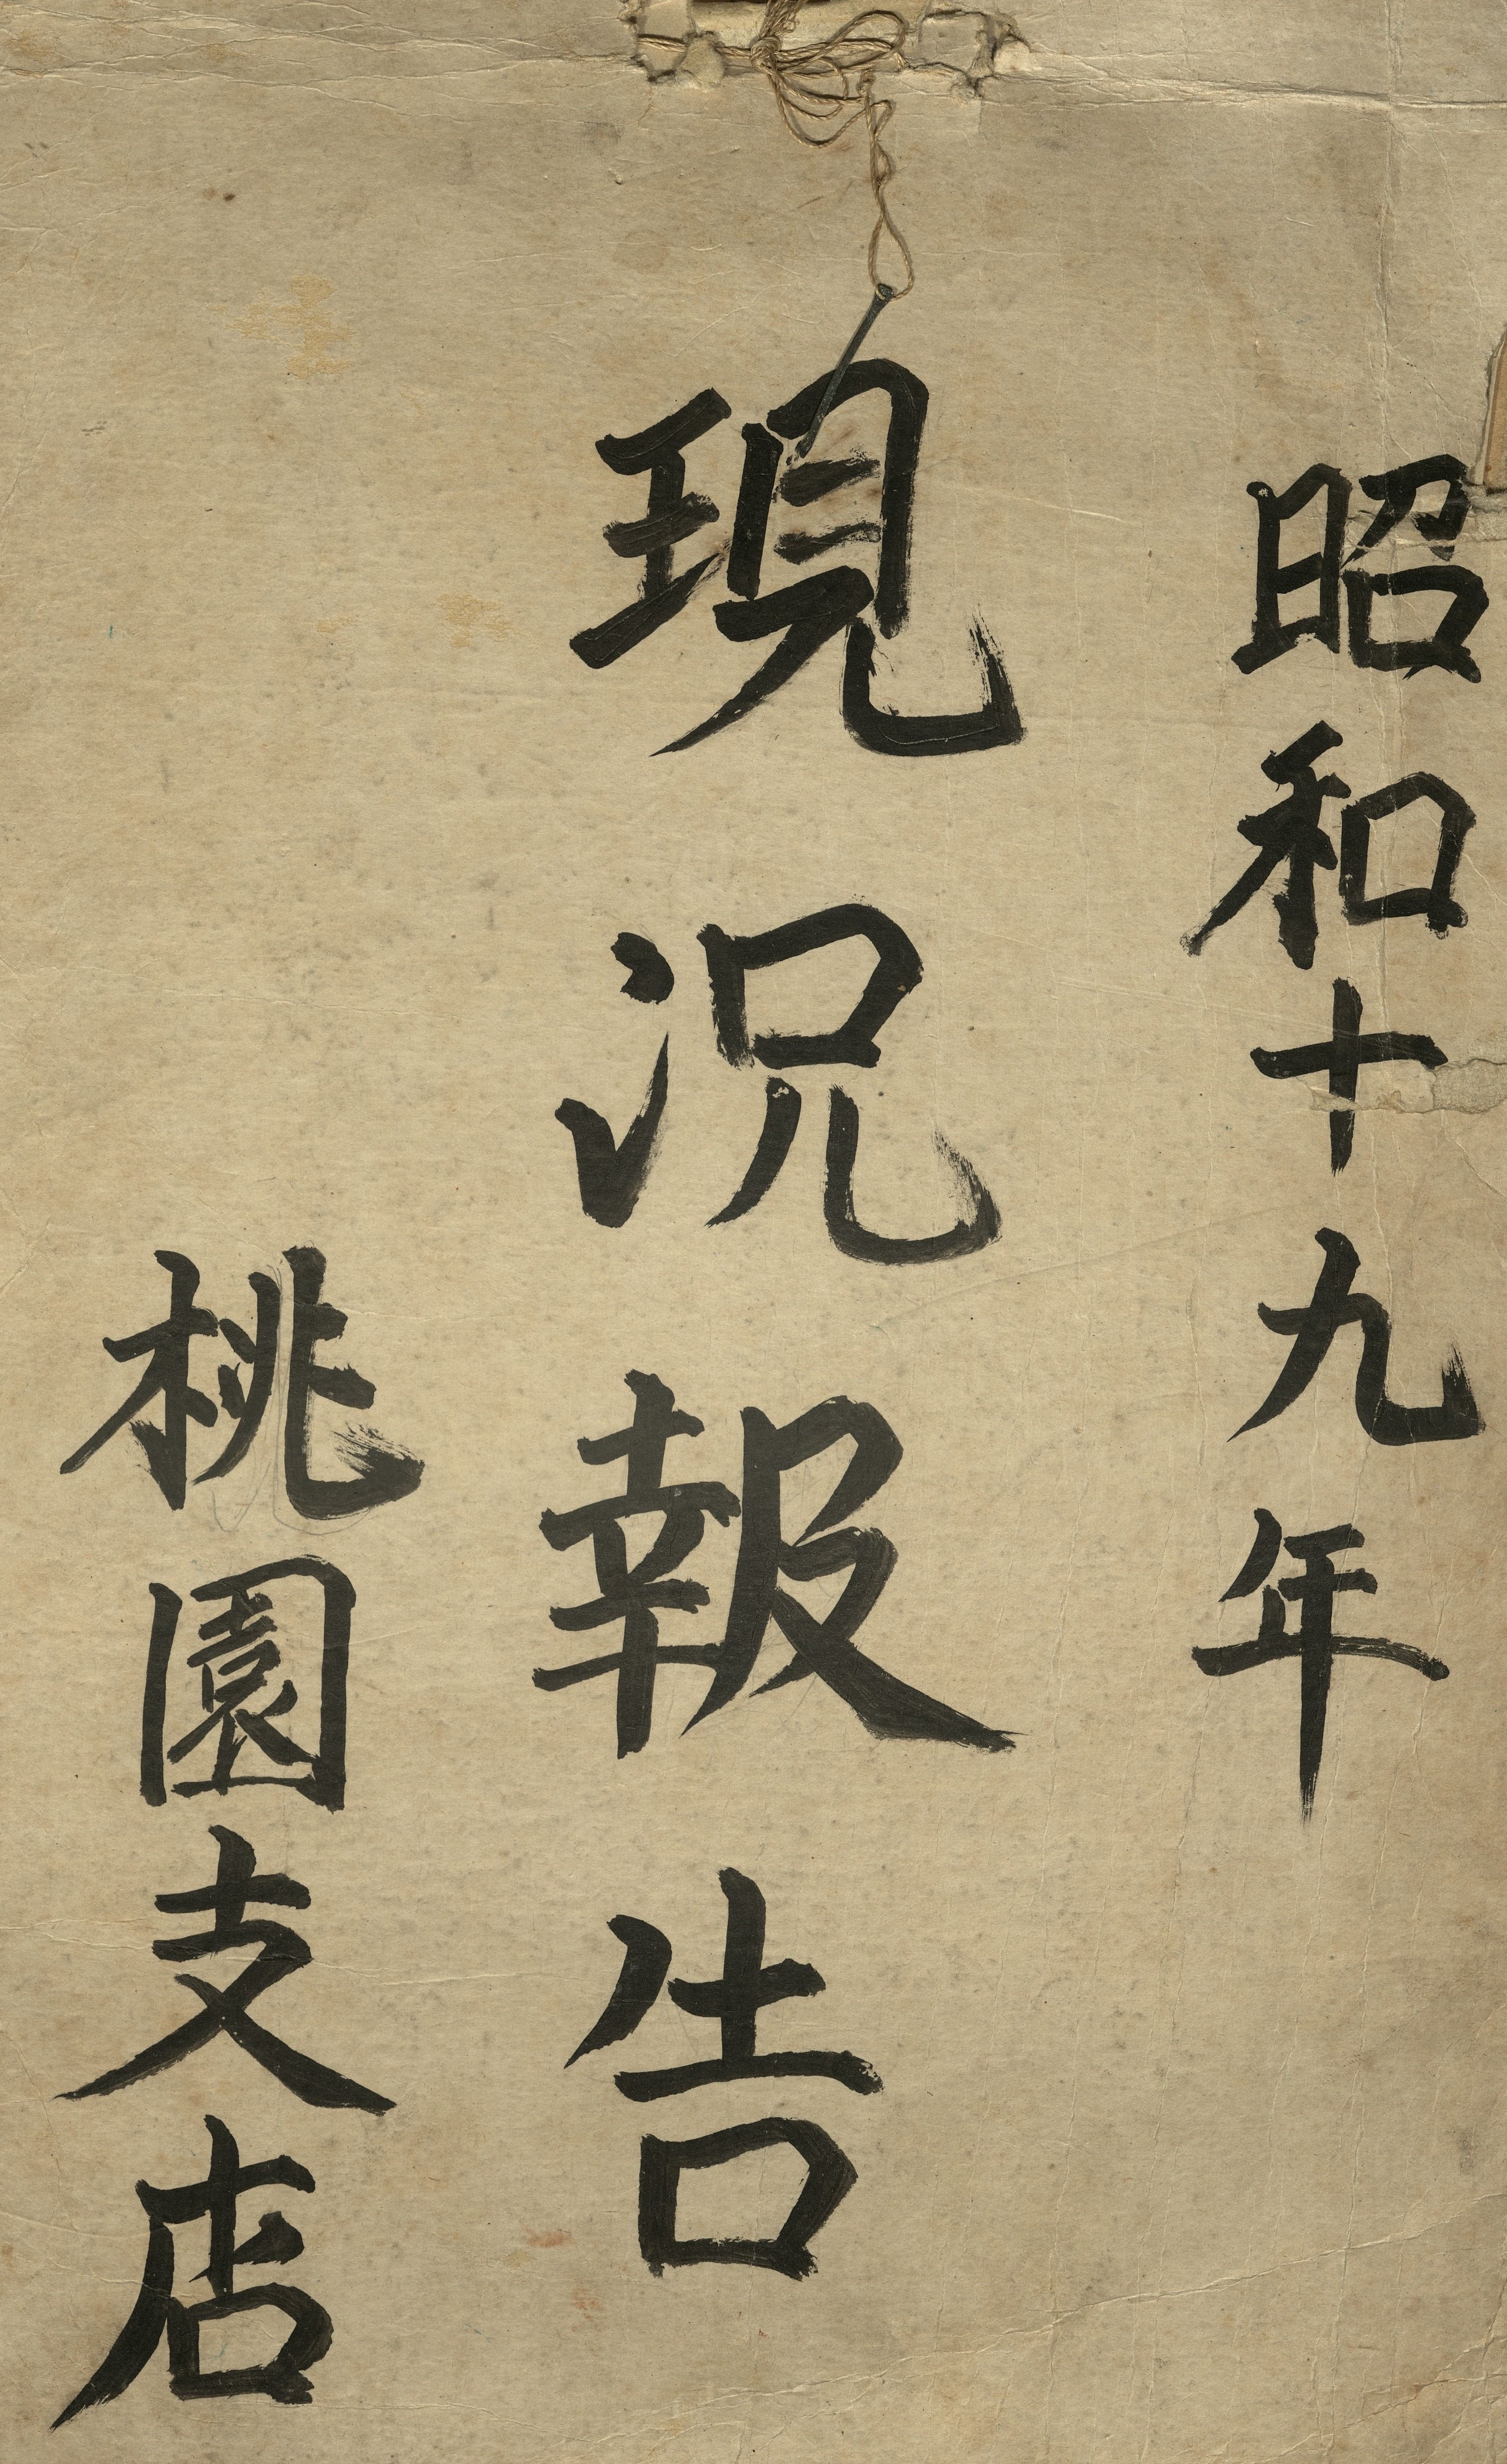 昭和十九年
現況報告
桃園支店